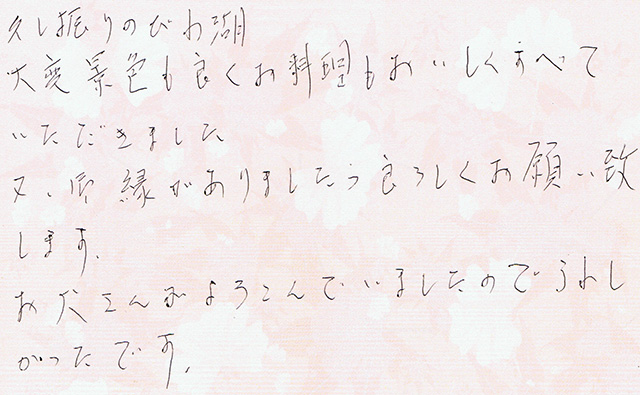 久し振りのびわ湖
大変景色も良くお料理もおいしくすべて
いただきました
又、ご縁がありましたら良ろしくお願い致
します。
お犬さんがよろこんでいましたのでうれし
かったです。